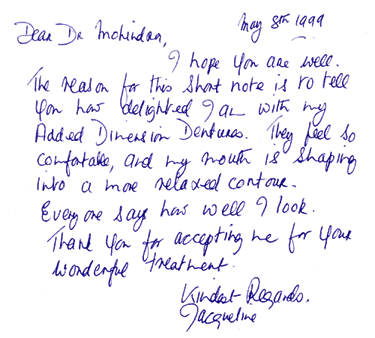 May 8th 1999
Dear Dr Mohindra,
I hope you are well.
The reason for this short note is to tell
you how delighted I am with my
Added Dimension Dentures. They feel so
comfortable, and my mouth is shaping
into a more relaxed contour.
Everyone says how well I look.
Thank you for accepting me for your
wonderful treatment.
Kindest Regards.
Jacqueline